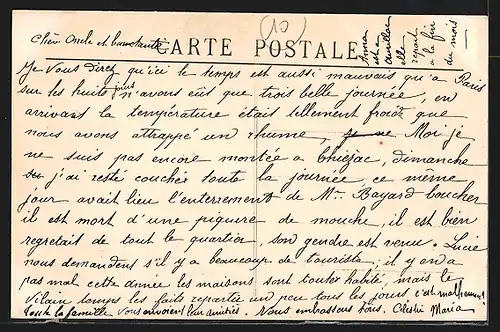 (10)
Cher Oncle et tante
CARTE POSTALE
Anna
est a
elle
repart
a la fin
du mois
Je vous direz qu'ici le temps est aussi mauvais qu'a Paris
sur les huits jours n'avons eût que trois belle journée, en
arrivant la température était tellement froide que
nous avons attrappé un rhume, je ne Moi je
ne suis pas encore montée a dimanche
j'ai resté couchée toute la journée ce même
jour avait lieu l'enterrement de Mr. Bayard boucher
il est mort d'une piqure de mouche, il est bien
regretait de tout le quartier, son gendre est venu. Lucie
nous demandent s'il y a beaucoup de touriste, il y en a
pas mal cette année les maisons sont toutes habité, mais le
vilain temps les faits repartir un peu tous les jours c'est malheureux
toute la famille vous envoient leur amitiés. Nous embrassons tous. Maria